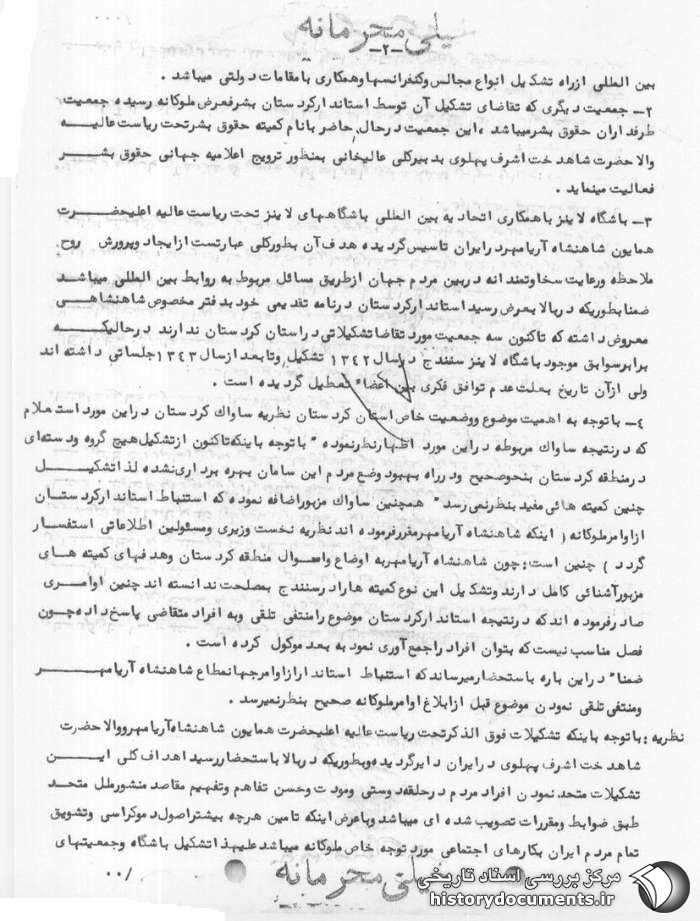 خیلی محرمانه
-۲-
بین المللی ازراه تشکیل انواع مجالس وکنفرانسهاوهمکاری بامقامات دولتی میباشد .
۲ـ جمعیت دیگری که تقاضای تشکیل آن توسط استاندارکردستان بشرفعرض ملوکانه رسیده جمعیت
طرفداران حقوق بشرمیباشد ،این جمعیت درحال حاضر بانام کمیته حقوق بشرتحت ریاست عالیـــه
والا حضرت شاهدخت اشرف پهلوی بدبیرکلی عالیخانی بمنظور ترویج اعلامیه جهانی حقوق بشــر
فعالیت مینماید .
۳ـ باشگاه لاینز باهمکاری اتحادیه بین المللی باشگاههای لاینز تحت ریاست عالیه اعلیحضــرت
همایون شاهنشاه آریامهردرایران تاسیس گردیده هدف آن بطورکلی عبارتست ازایجاد وپرورش روح
ملاحظه ورعایت سخاوتمندانه دربین مردم جهان ازطریق مسائل مربوط به روابط بین المللی میباشــد
ضمنابطوریکه دربالا بعرض رسید استاندارکردستان درنامه تقدیمی خود بدفتر مخصوص شاهنشاهــی
معروض داشته که تاکنون سه جمعیت مورد تقاضا تشکیلاتی دراستان کردستان ندارند درحالیکـــه
برابرسوابق موجود باشگاه لاینز سنندج درسال ۱۳۴۲ تشکیل وتابعد ازسال ۱۳۴۳جلساتی داشته اند
ولی ازآن تاریخ بعلت عدم توافق فکری بین اعضاء تعطیل گردیده است .
۴ـ باتوجه به اهمیت موضوع ووضعیت خاص استان کردستان نظریه ساواك کردستان دراین مورد استعلام
که درنتیجه ساواك مربوطه دراین مورد اظهارنظرنموده " باتوجه باینکه تاکنون ازتشکیل هیچ گروه ودسته ای
درمنطقه کردستان بنحوصحیح ودرراه بهبود وضع مردم این سامان بهره برداری نشده لذا تشکیـــل
چنین کمیته هائی مفید بنظرنمی رسد" همچنین ساواك مزبوراضافه نموده که استنباط استاندارکردستـان
ازاوامرملوکانه ( اینکه شاهنشاه آریامهرمقررفرموده اند نظریه نخست وزیری ومسئولین اطلاعاتی استفسار
گردد ) چنین است : چون شاهنشاه آریامهربه اوضاع واحوال منطقه کردستان وهدفهای کمیته هـای
مزبورآشنائی کامل دارند وتشکیل این نوع کمیته هارادرسنندج بمصلحت ندانسته اند چنین اوامـــری
صادرفرموده اند که درنتیجه استاندارکردستان موضوع رامنتفی تلقی وبه افراد متقاضی پاسخ داده چـون
فصل مناسب نیست که بتوان افراد راجمع آوری نمود به بعد موکول کرده است .
ضمنا" دراین باره باستحضارمیرساند که استنباط استاندارازاوامرجهانمطاع شاهنشاه آریامهـــر
ومنتفی تلقی نمودن موضوع قبل ازابلاغ اوامرملوکانه صحیح بنظرنمیرسد .
نظریه : باتوجه باینکه تشکیلات فوق الذکرتحت ریاست عالیه اعلیحضرت همایون شاهنشاه آریامهرووالا حضرت
شاهدخت اشرف پهلوی درایران دایرگردیده وبطوریکه دربالا باستحضاررسید اهداف کلی ایـــن
تشکیلات متحد نمودن افراد مردم درحلقه دوستی ومودت وحسن تفاهم وتفهیم مقاصد منشورملل متحـد
طبق ضوابط ومقررات تصویب شده ای میباشد وباعرض اینکه تامین هرچه بیشتراصول دموکراسی وتشویق
تمام مردم ایران بکارهای اجتماعی مورد توجه خاص ملوکانه میباشد علیهذا تشکیل باشگاه وجمعیتهای
/۰۰
خیلی محرمانه
مرکز بررسی اسناد تاریخی
historydocuments.ir